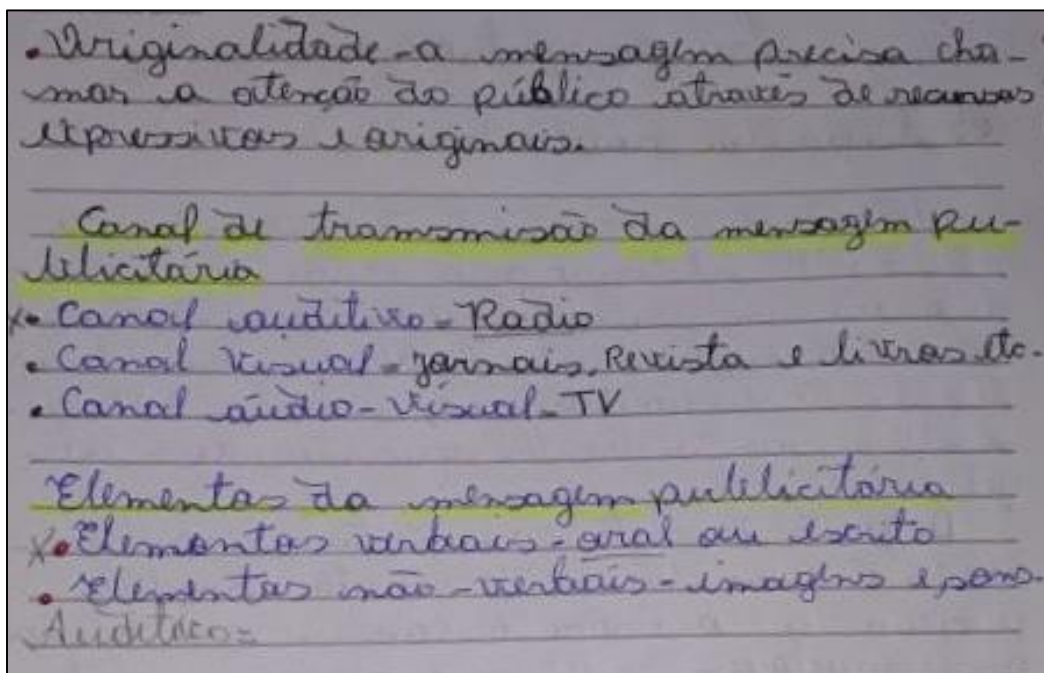 • Originalidade - a mensagem precisa cha-
mar a atenção do público através de recursos
expressivos e originais.
Canal de transmissão da mensagem pu-
blicitária
x• Canal auditivo - Rádio
• Canal visual - jornais, Revista e livros etc.
• Canal áudio - visual - TV
Elementos da mensagem publicitária
x• Elementos verbais - oral ou escrito
• Elementos não - verbais - imagens e sons.